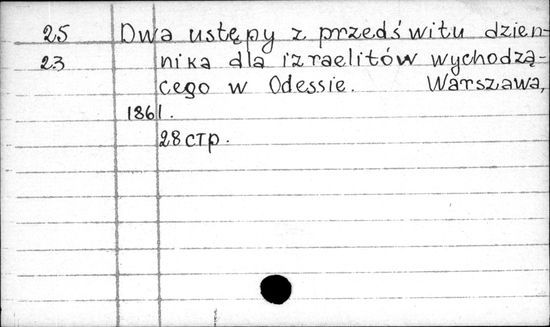 25 Dwa ustępy z przedświtu dzien-
23 nika dla izraelitów wychodzą-
cego w Odessie. Warszawa,
1861.
28 стр.